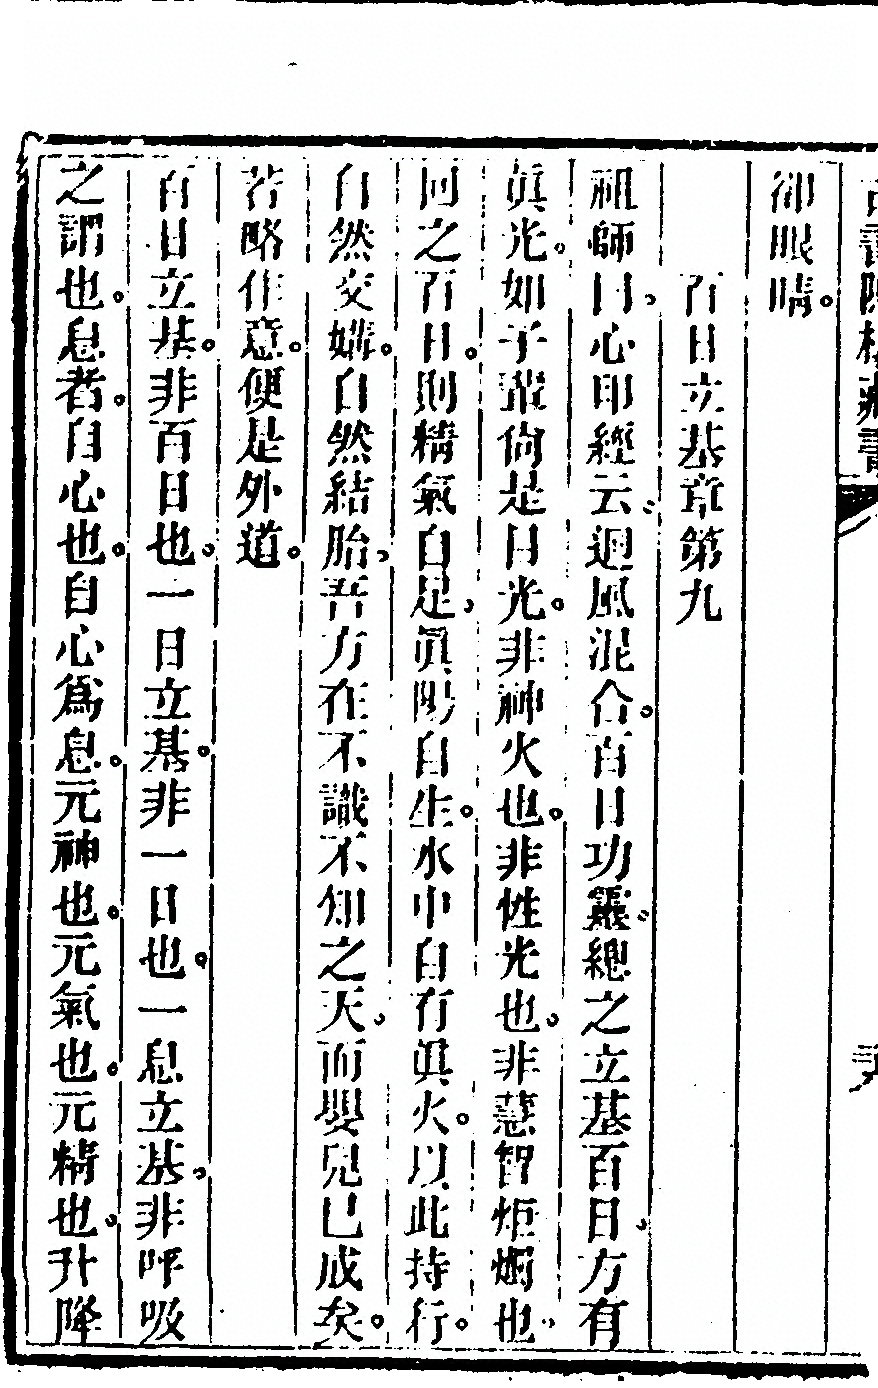 卻眼睛。
百日立基章第九
祖師曰。心印經云。迴風混合。百日功靈。總之立基百日。方有
眞光。如子輩尙是目光。非神火也。非性光也。非慧智炬燭也。
回之百日。則精氣自足。眞陽自生。水中自有眞火。以此持行。
自然交媾。自然結胎。吾方在不識不知之天。而嬰兒已成矣。
若略作意。便是外道。
百日立基。非百日也。一日立基。非一日也。一息立基。非呼吸
之謂也。息者。自心也。自心爲息。元神也。元氣也。元精也。升降